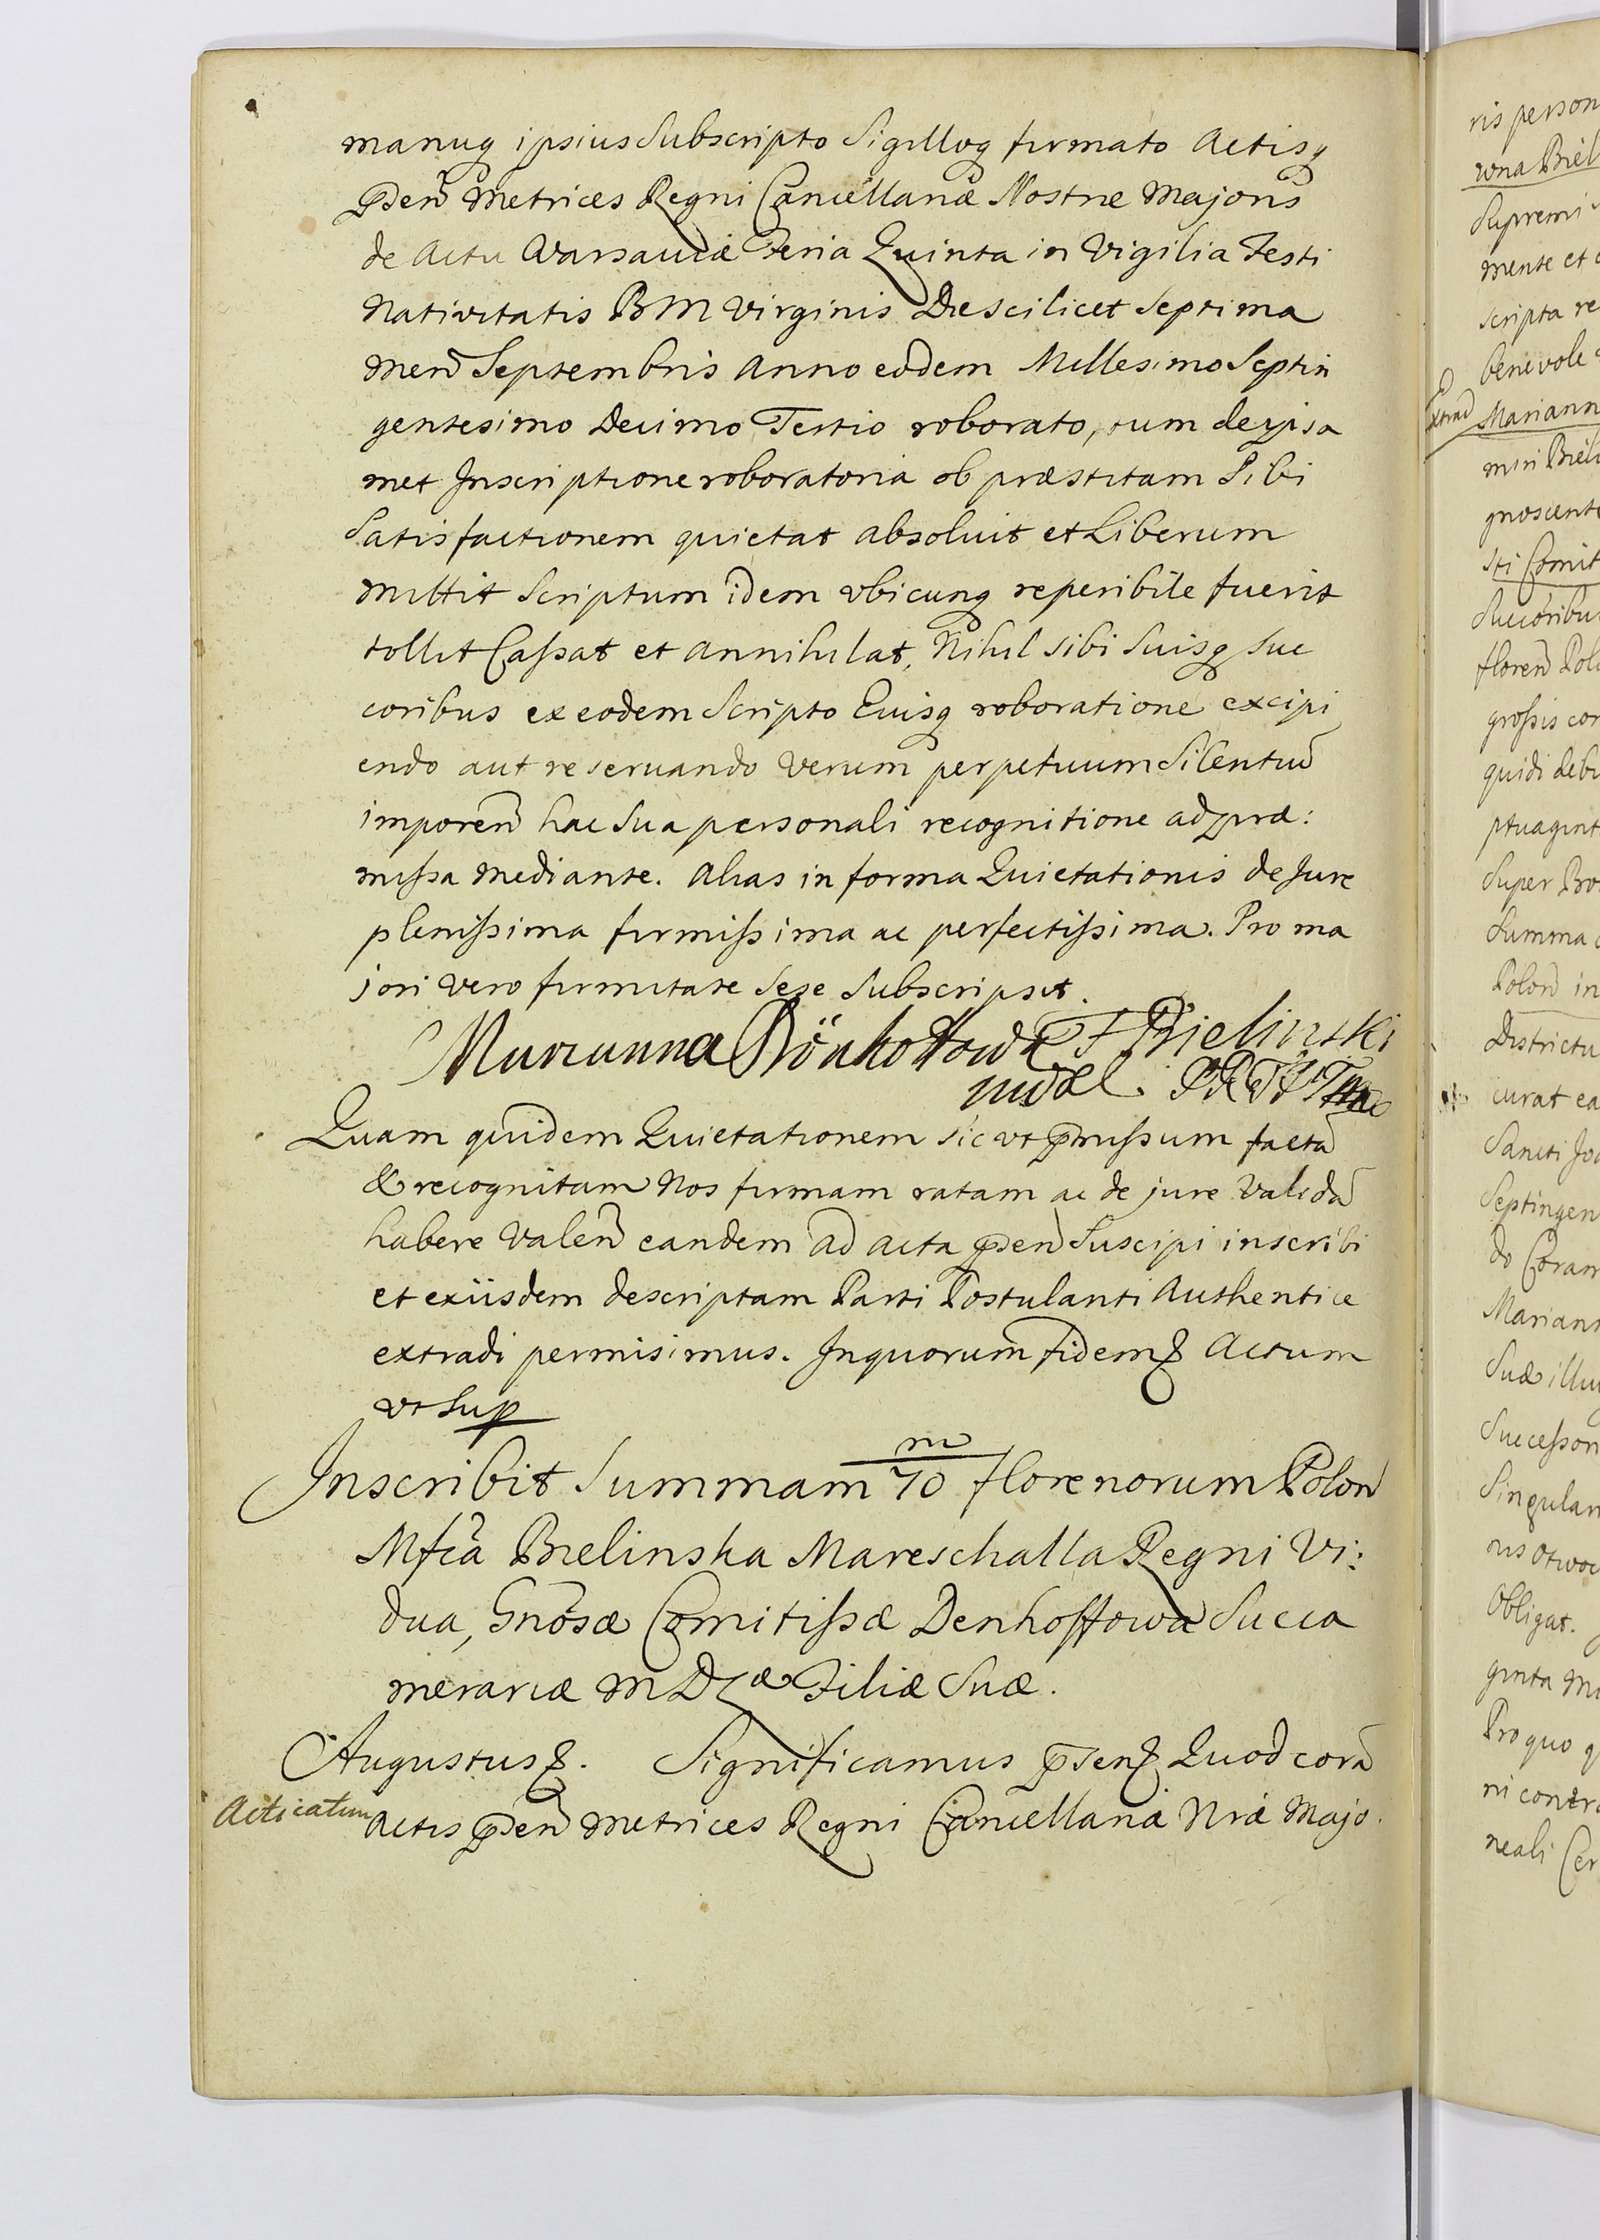 manuq ipsius Subscripto Sigilloq firmato Actisq
Pden Metrices Regni Cancellariæ Nostræ Majoris
de Actu Varsauiæ Feria Quinta in Vigilia Festi
Nativitatis B M Virginis Die scilicet Septima
Men Septembris Anno eodem Millesimo Septin
gentesimo Decimo Tertio roborato, tum de ipsa
met Inscriptione roboratoria ob præstitam Sibi
Satisfactionem quietat absoluit et Liberum
mittit Scriptum idem vbicunq reperibile fuerit
tollit Cassat et Annihilat, Nihil sibi Suisq Suc
coribus ex eodem Scripto Euisq roboratione excipi
endo aut reseruando Verum perpetuum Silentiū
imponen hac Sua personali recognitione ad præ:
missa mediante. Alias in forma Quietationis de Jure
plenissima firmissima ac perfectissima. Pro ma
jori Vero firmitate Sese Subscripsit.
Marianna Dönhoffowa F Bielinski
Quam quidem Quietationem sic vt pmissum factā
& recognitam Nos firmam ratam ac de jure Validā
habere Valen eandem ad acta pden Suscipi inscribi
et exiisdem descriptam Parti Postulanti Authentice
extradi permisimus. Inquorum fidem Actum
vt Sup
Inscribit Summam 70 m florenorum Polon
Mfca Bielinska Mareschalla Regni Vi:
dua, Gnosæ Comitissæ Denhoffowa Succa
merariæ M D L æ Filiæ Suæ.
Augustus. Significamus psen Quod corā
Acticatum
Actis pden Metrices Regni Cancellariæ Nræ Majo.
ris person
wna Biel
Supremi
mente et
scripta re
benevole
extrad
Mariann
miri Biel
gnoscent
sti Comit
Succoribu
floren Pol
grossis co
quidi deb
ptuagint
Super Bo
Summa
Polon in
Districtu
curat ea
Sancti Jo
Septingen
do Coram
Mariann
Suæ illu
Successor
Singular
Obligat.
ginta m
Pro quo q
ni contra
neali Cer